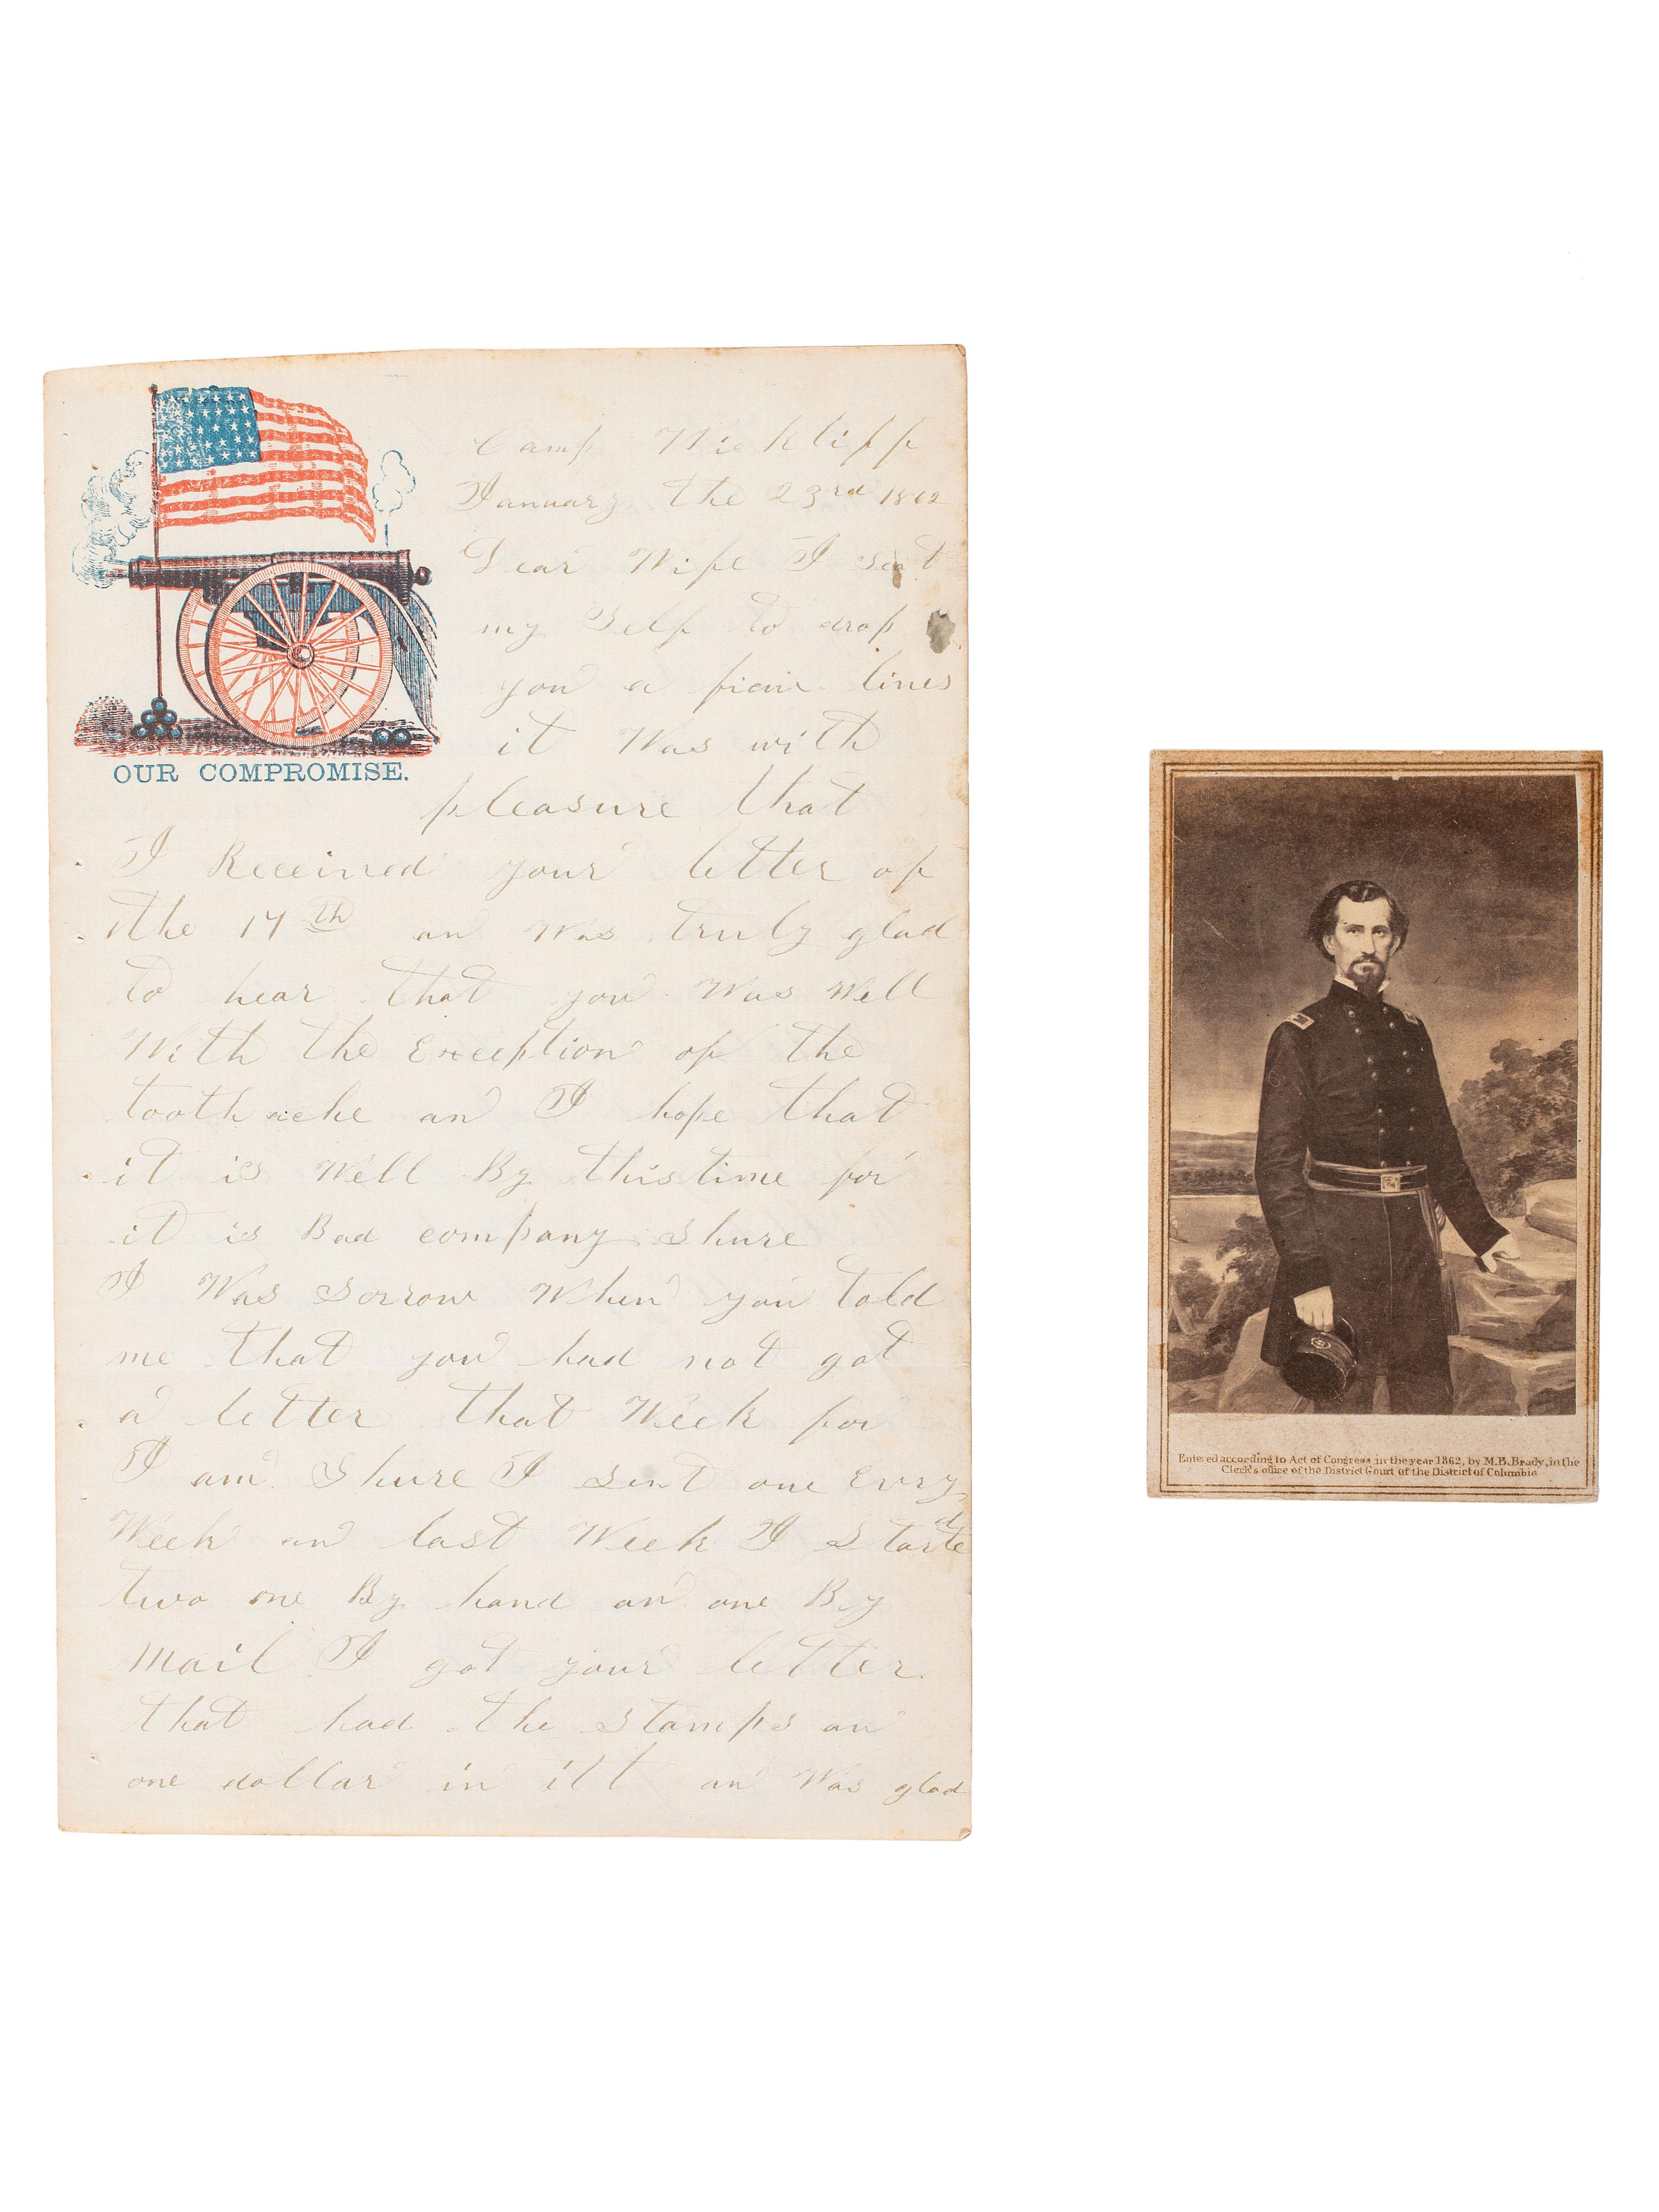 OUR COMPROMISE.
Camp Wickliff
January the 23rd 1862
Dear Wife I seat
my Self to drop
you a fiew lines
it Was with
pleasure that
I Received your letter of
the 17th an Was truly glad
to hear that you Was Well
With the Exception of the
toothache an I hope that
it is Well By this time for
it is Bad company Shure
I Was Sorrow When you told
me that you had not got
a letter that Week for
I am Shure I Sent one Evry
Week an last Week I Started
two one By hand an one By
Mail I got your letter
that had the Stamps an
one dollar in itt an Was glad
Entered according to Act of Congress in the year 1862, by M.B. Brady, in the
Clerk's office of the District Court of the District of Columbia